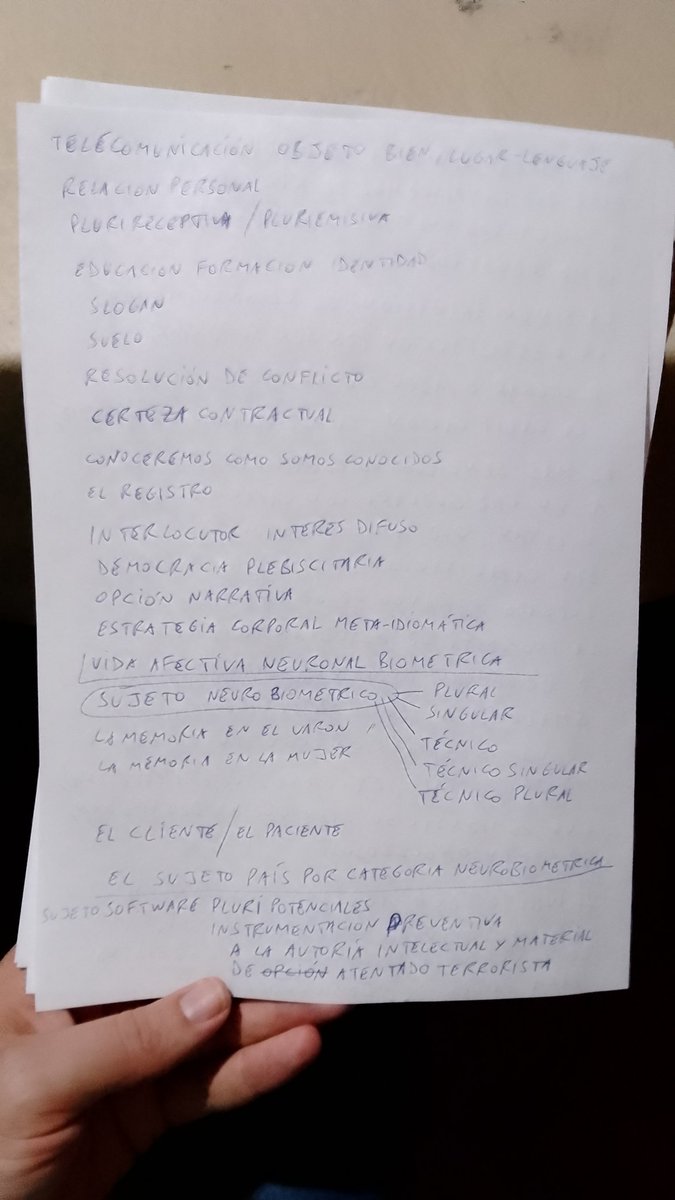 TELECOMUNICACIÓN OBJETO BIEN, LUGAR-LENGUAJE
RELACION PERSONAL
PLURIRECEPTIVA / PLURIEMISIVA
EDUCACION FORMACION IDENTIDAD
SLOGAN
SUELO
RESOLUCIÓN DE CONFLICTO
CERTEZA CONTRACTUAL
CONOCEREMOS COMO SOMOS CONOCIDOS
EL REGISTRO
INTERLOCUTOR INTERES DIFUSO
DEMOCRACIA PLEBISCITARIA
OPCIÓN NARRATIVA
ESTRATEGIA CORPORAL META-IDIOMÁTICA
VIDA AFECTIVA NEURONAL BIOMETRICA
SUJETO NEUROBIOMETRICO
PLURAL
SINGULAR
TÉCNICO
TÉCNICO SINGULAR
TÉCNICO PLURAL
LA MEMORIA EN EL VARON
LA MEMORIA EN LA MUJER
EL CLIENTE / EL PACIENTE
EL SUJETO PAÍS POR CATEGORIA NEUROBIOMETRICA
SUJETO SOFTWARE PLURIPOTENCIALES
INSTRUMENTACION PREVENTIVA
A LA AUTORÍA INTELECTUAL Y MATERIAL
DE OPCIÓN ATENTADO TERRORISTA